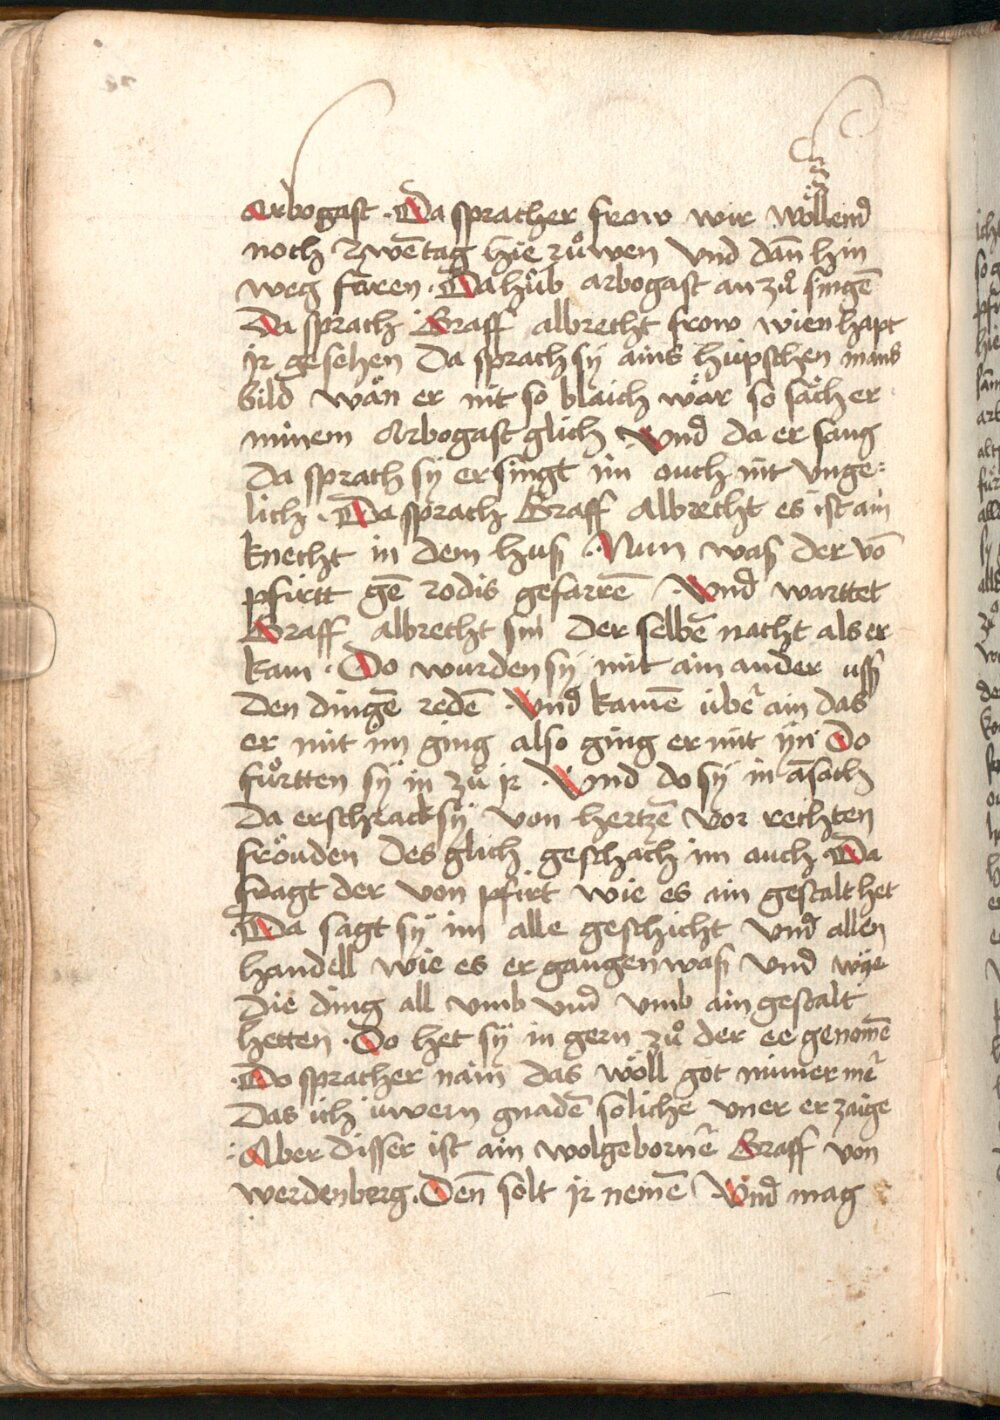 Arbogast · Da sprach er frow wir wöllend
noch zwen̄ tag hie růwen vnd dan̄ hin
weg faren · Da hůb arbogast an zů singen̄
Da sprach Graff albrecht frow wien hapt
jr gesehen Da sprach sÿ ains hüpschen mans
bild wän er nit so blaich wär so säch er
minem Arbogast glich · Vnd da er sang
Da sprach sÿ er singt im ouch nit vnge:
lich · Da sprach Graff Albrecht es ist ain
knecht in dem huß · Nun waß der vō
pfirtt gē rodis gefarrē · Vnd warttet
Graff albrecht sin der selbē nacht als er
kam · Do wurden sÿ mit ain ander uff
den dingē redē · Vnd kamē über ain das
er mit im ging also ging er mit im Do
fůrtten sÿ in zů jr · Vnd do sÿ in ā sach
Da erschrack sÿ von hertzē vor rechten
fröuden des glich geschach im auch Da
fragt der von pfirt wie es ain gestalt het
Da sagt sÿ im alle geschicht vnd allen
handell wie es ergangen waß vnd wie
die ding all vmb vnd vmb ain gestalt
hetten · Do het sÿ in gern zů der ee genomē
· Do sprach er nain das wöll got nimer mer
Das ich üwern gnadē soliche vner erzaige
: Aber disser ist ain wolgebornē Graff von
werdenberg · Den̄ sölt jr nemē · Vnd mag